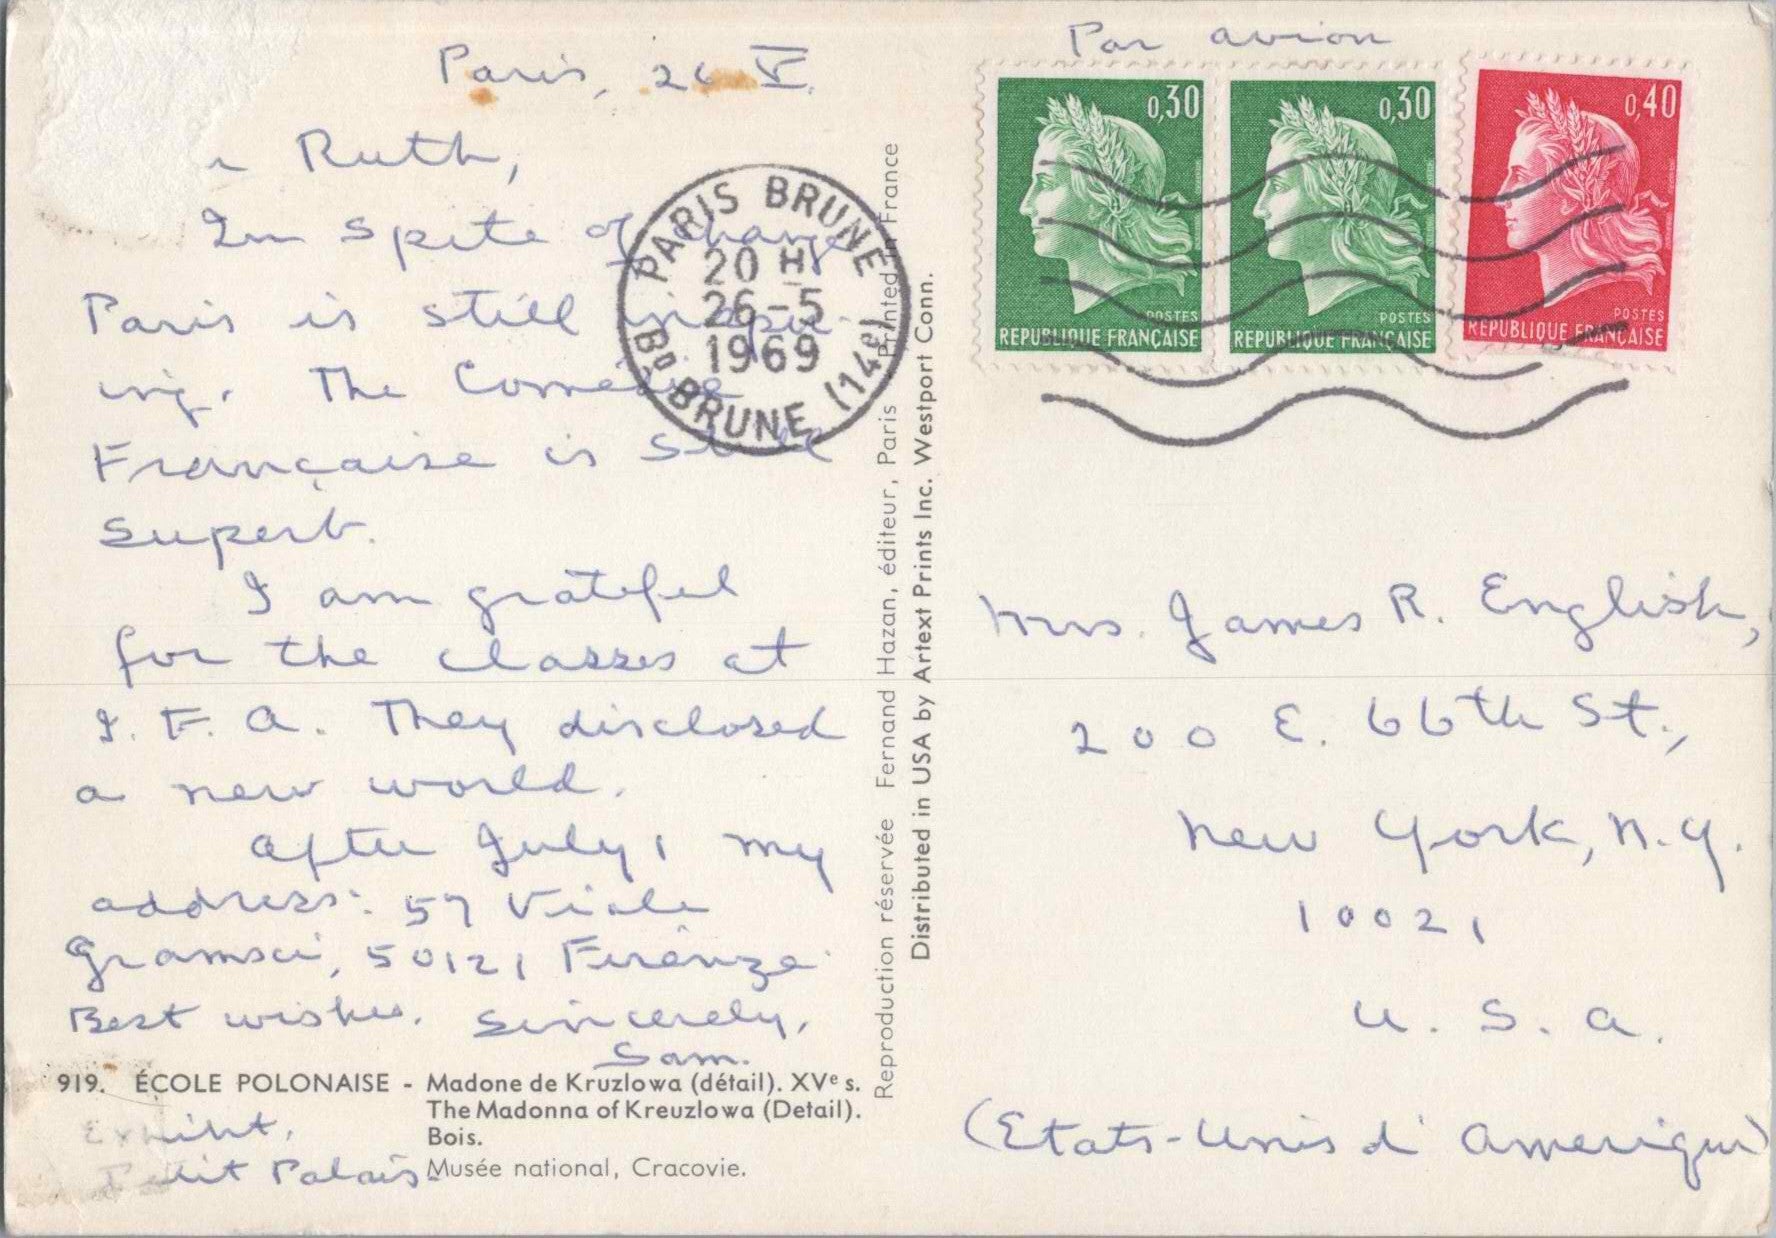 Paris, 26 V.
Ruth,
In spite of change
Paris is still inspir-
ing. The Comédie
Française is still
superb.
I am grateful
for the classes at
I. F. A. They disclosed
a new world.
After July 1 my
address: 57 Viale
Gramsci, 50121 Firenze
Best wishes. Sincerely,
Sam.
919. ÉCOLE POLONAISE - Madone de Kruzlowa (détail). XVe s.
The Madonna of Kreuzlowa (Detail).
Bois.
Musée national, Cracovie.
Exhibit,
Petit Palais.
PARIS BRUNE
20 H
26-5
1969
Bd BRUNE (14e)
Reproduction réservée Fernand Hazan, éditeur, Paris Printed in France
Distributed in USA by Artext Prints Inc. Westport Conn.
Par avion
0,30
POSTES
REPUBLIQUE FRANÇAISE
0,30
POSTES
REPUBLIQUE FRANÇAISE
0,40
POSTES
REPUBLIQUE FRANÇAISE
Mrs. James R. English,
200 E. 66th St.,
New York, N.Y.
10021
U. S. A.
(Etats-Unis d'Amerique)